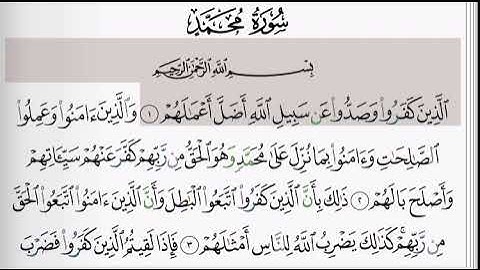 سُورَةُ مُحَمَّدٍ
بِسْمِ ٱللَّهِ ٱلرَّحْمَٰنِ ٱلرَّحِيمِ
ٱلَّذِينَ كَفَرُوا۟ وَصَدُّوا۟ عَن سَبِيلِ ٱللَّهِ أَضَلَّ أَعْمَٰلَهُمْ ١ وَٱلَّذِينَ ءَامَنُوا۟ وَعَمِلُوا۟
ٱلصَّٰلِحَٰتِ وَءَامَنُوا۟ بِمَا نُزِّلَ عَلَىٰ مُحَمَّدٍ وَهُوَ ٱلْحَقُّ مِن رَّبِّهِمْ كَفَّرَ عَنْهُمْ سَيِّـَٔاتِهِمْ
وَأَصْلَحَ بَالَهُمْ ٢ ذَٰلِكَ بِأَنَّ ٱلَّذِينَ كَفَرُوا۟ ٱتَّبَعُوا۟ ٱلْبَٰطِلَ وَأَنَّ ٱلَّذِينَ ءَامَنُوا۟ ٱتَّبَعُوا۟ ٱلْحَقَّ
مِن رَّبِّهِمْ ۚ كَذَٰلِكَ يَضْرِبُ ٱللَّهُ لِلنَّاسِ أَمْثَٰلَهُمْ ٣ فَإِذَا لَقِيتُمُ ٱلَّذِينَ كَفَرُوا۟ فَضَرْبَ